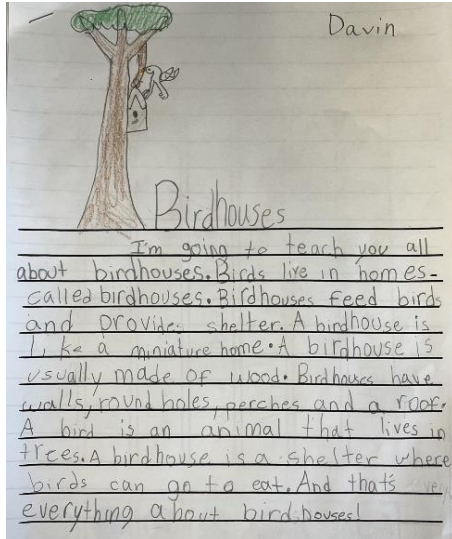 Davin
Birdhouses
I'm going to teach you all
about birdhouses. Birds live in homes-
called birdhouses. Birdhouses feed birds
and provide shelter. A birdhouse is
like a miniature home. A birdhouse is
usually made of wood. Birdhouses have
walls, round holes, perches and a roof.
A bird is an animal that lives in
trees. A birdhouse is a shelter where
birds can go to eat. And that's very
everything about birdhouses!